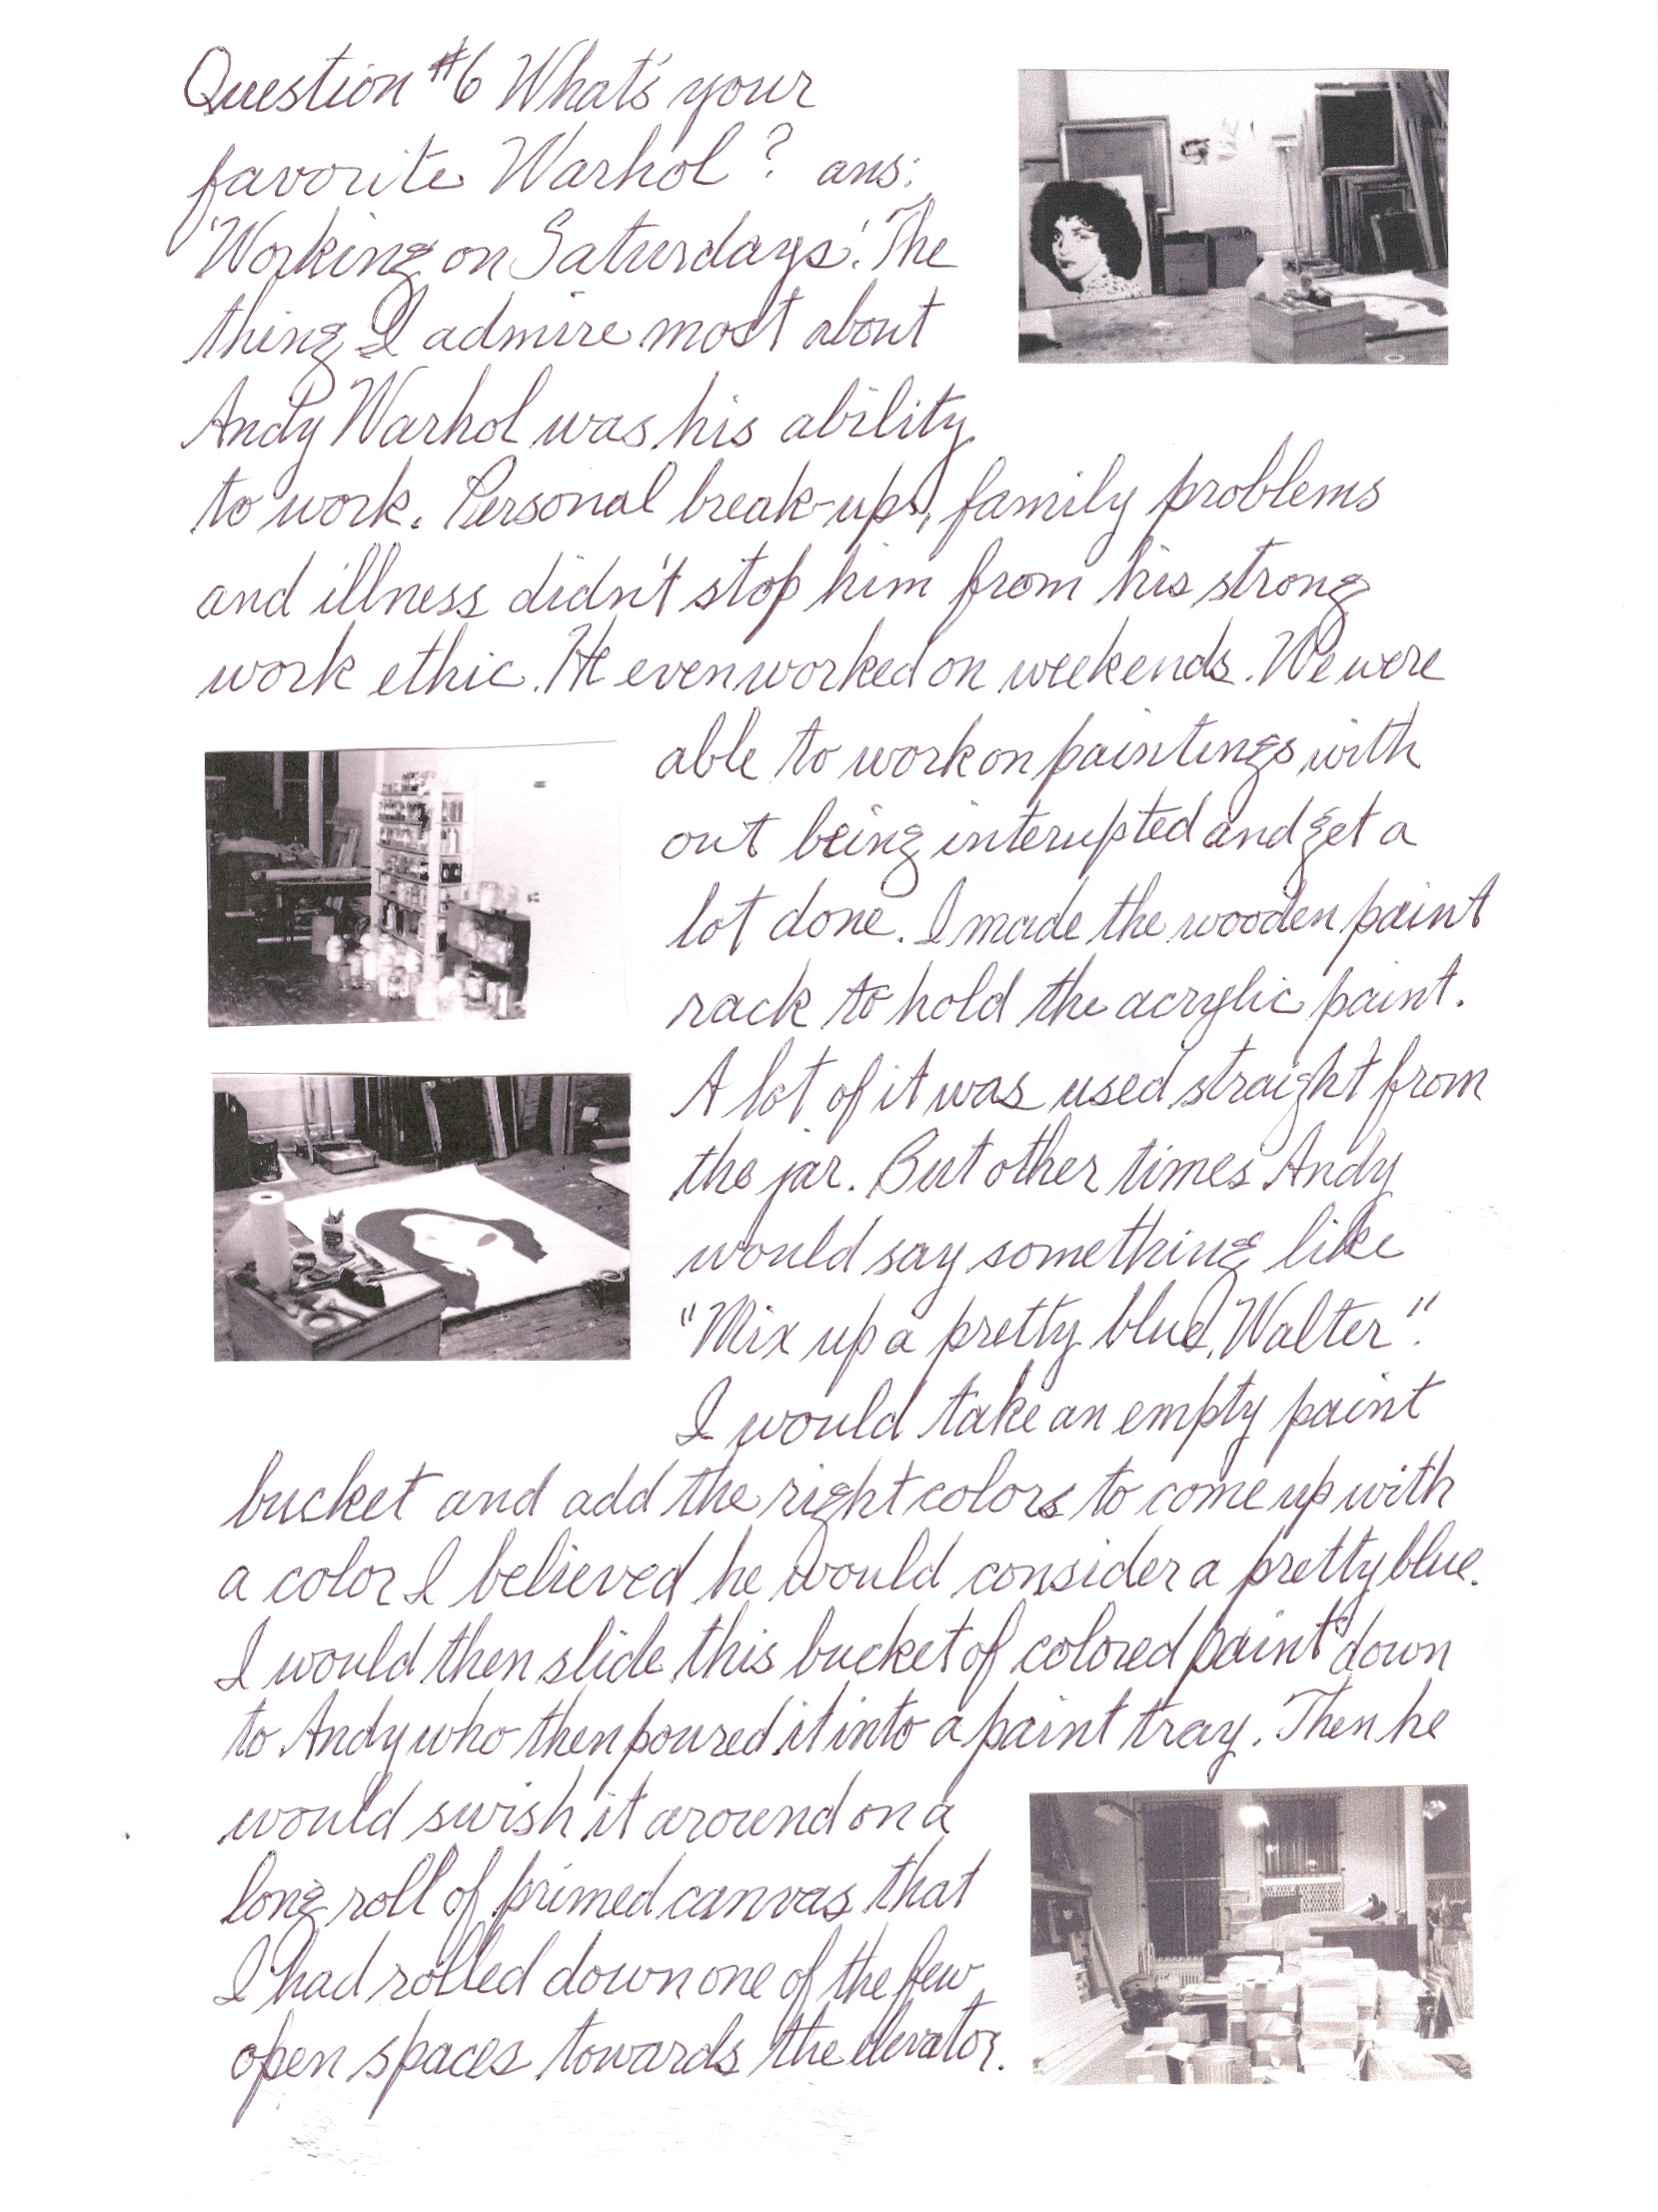 Question #6 What's your
favorite Warhol? ans:
'Working on Saturdays'. The
thing I admire most about
Andy Warhol was his ability
to work. Personal break-ups, family problems
and illness didn't stop him from his strong
work ethic. He even worked on weekends. We were
able to work on paintings with
out being interupted and get a
lot done. I made the wooden paint
rack to hold the acrylic paint.
A lot of it was used straight from
the jar. But other times Andy
would say something like
"Mix up a pretty blue, Walter".
I would take an empty paint
bucket and add the right colors to come up with
a color I believed he would consider a pretty blue.
I would then slide this bucket of colored paint down
to Andy who then poured it into a paint tray. Then he
would swish it around on a
long roll of primed canvas that
I had rolled down one of the few
open spaces towards the elevator.